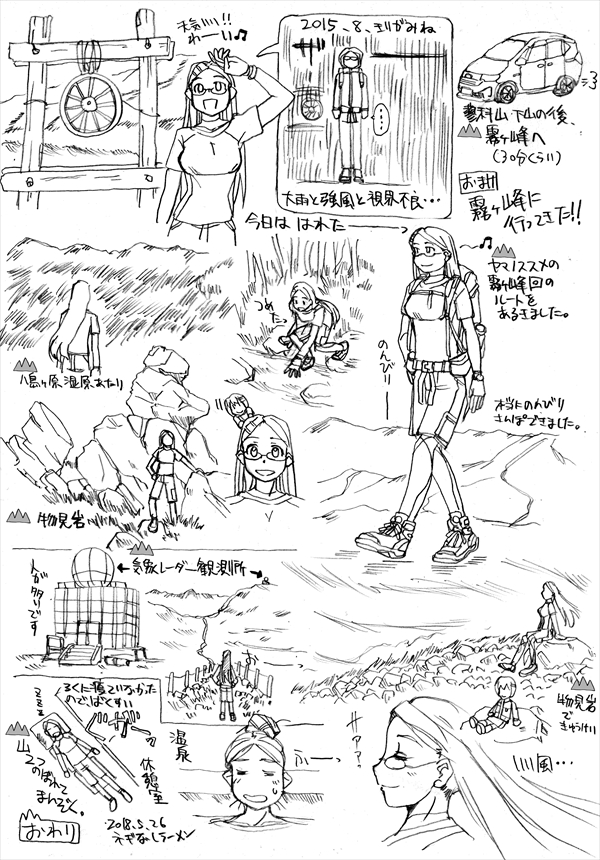 蓼科山下山の後、
霧ヶ峰へ
(30分くらい)
おまけ
霧ヶ峰に
行ってきた!!
天気いい!!
わーい♪
2015、8、きりがみね
・・・・
大雨と強風と視界不良・・・
今日は はれた
ヤマノススメの
霧ヶ峰回の
ルートを
あるきました。
のんびり
本当にのんびり
さんぽできました。
つめた
八島ヶ原湿原あたり
物見岩
←気象レーダー観測所→
人が多いです
物見岩
できゅうけい
サァァ?
いい風・・・
温泉
ふーっ
ろくに寝ていなかった
のでばくすい
ZZZZ
休憩室
山2つ
のぼれて
まんぞく。
おわり
2018.5.26
ネギなしラーメン